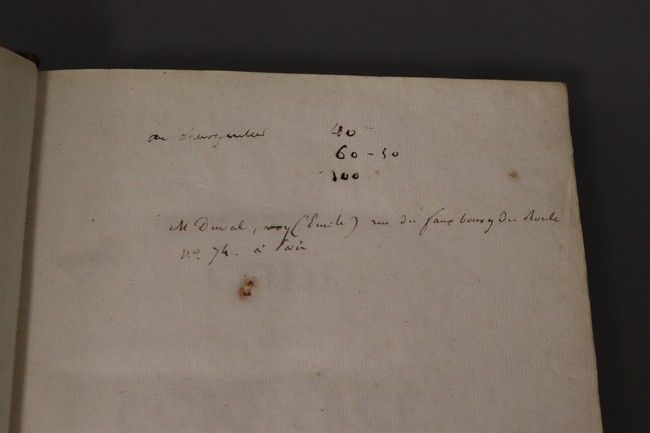 au 40
60 - 50
100
M Duval, (Emile) rue du fauxbourg du Roule
no. 74. à Paris